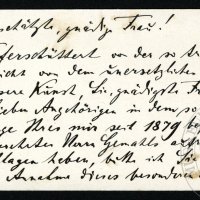 schätzte, gnädige Frau!
erschüttert von der so
nicht von dem unersetzlichen
sere Kunst, Sie, gnädigste
lieben Angehörigen in dem, so
ge Ihres mir seit 1879
ehrten Herrn Gemahls
lagen haben, bitte ich Sie
Annahme dieses besonderen